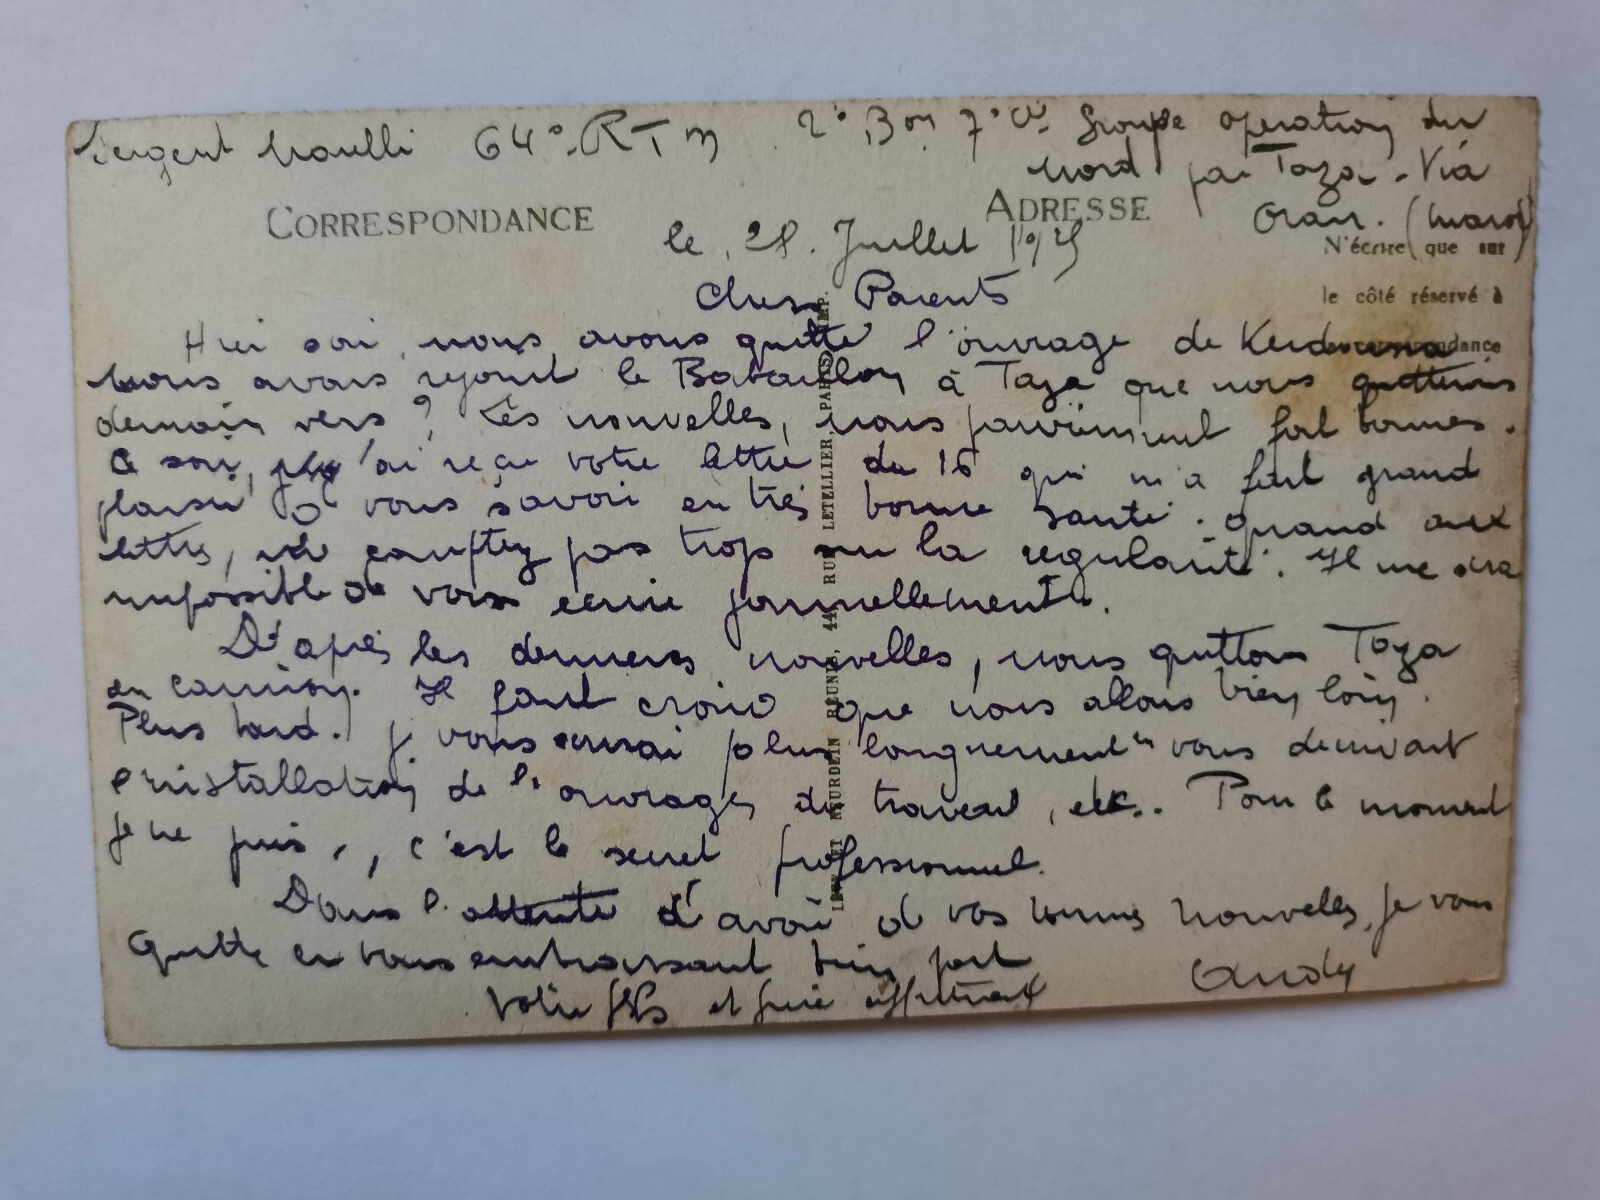 Sergent 64e RTM 2e Bon 7e Cie Groupe operation du
Nord par Taza. Via
Oran. (Maroc)
CORRESPONDANCE
ADRESSE
N'écrire que sur
le côté réservé à
la correspondance
le 28 Juillet 1925
Chers Parents
Hier soir, nous avons quitté l'ouvrage de
nous avons rejoint le Bataillon à Taza que nous quitterons
demain vers ? Les nouvelles, nous parviennent fort bonnes.
Ce soir, j'ai reçu votre lettre du 16 qui m'a fait grand
plaisir de vous savoir en très bonne santé. Quand aux
lettres, ne comptez pas trop sur la régularité. Il me sera
impossible de vous écrire journellement.
D'après les dernieres nouvelles, nous quittons Taza
en camion. Il faut croire que nous allons bien loin.
Plus tard. je vous écrirai plus longuement en vous decrivant
l'installation de l'ouvrage, du travail, etc.. Pour le moment
je ne puis, c'est le secret professionnel.
Dans l'attente d'avoir de vos bonnes nouvelles, je vous
quitte en vous embrassant bien fort
Votre fils et frère affectueux
LEVY ET NEURDEIN RÉUNIS, 44, RUE LETELLIER, PARIS, IMP.